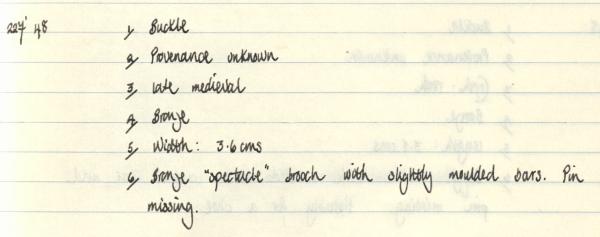 227' 48 1, Buckle
2, Provenance unknown
3, Late medieval
4, Bronze
5, Width: 3.6 cms
6, Bronze "spectacle" brooch with slightly moulded bars. Pin
missing.